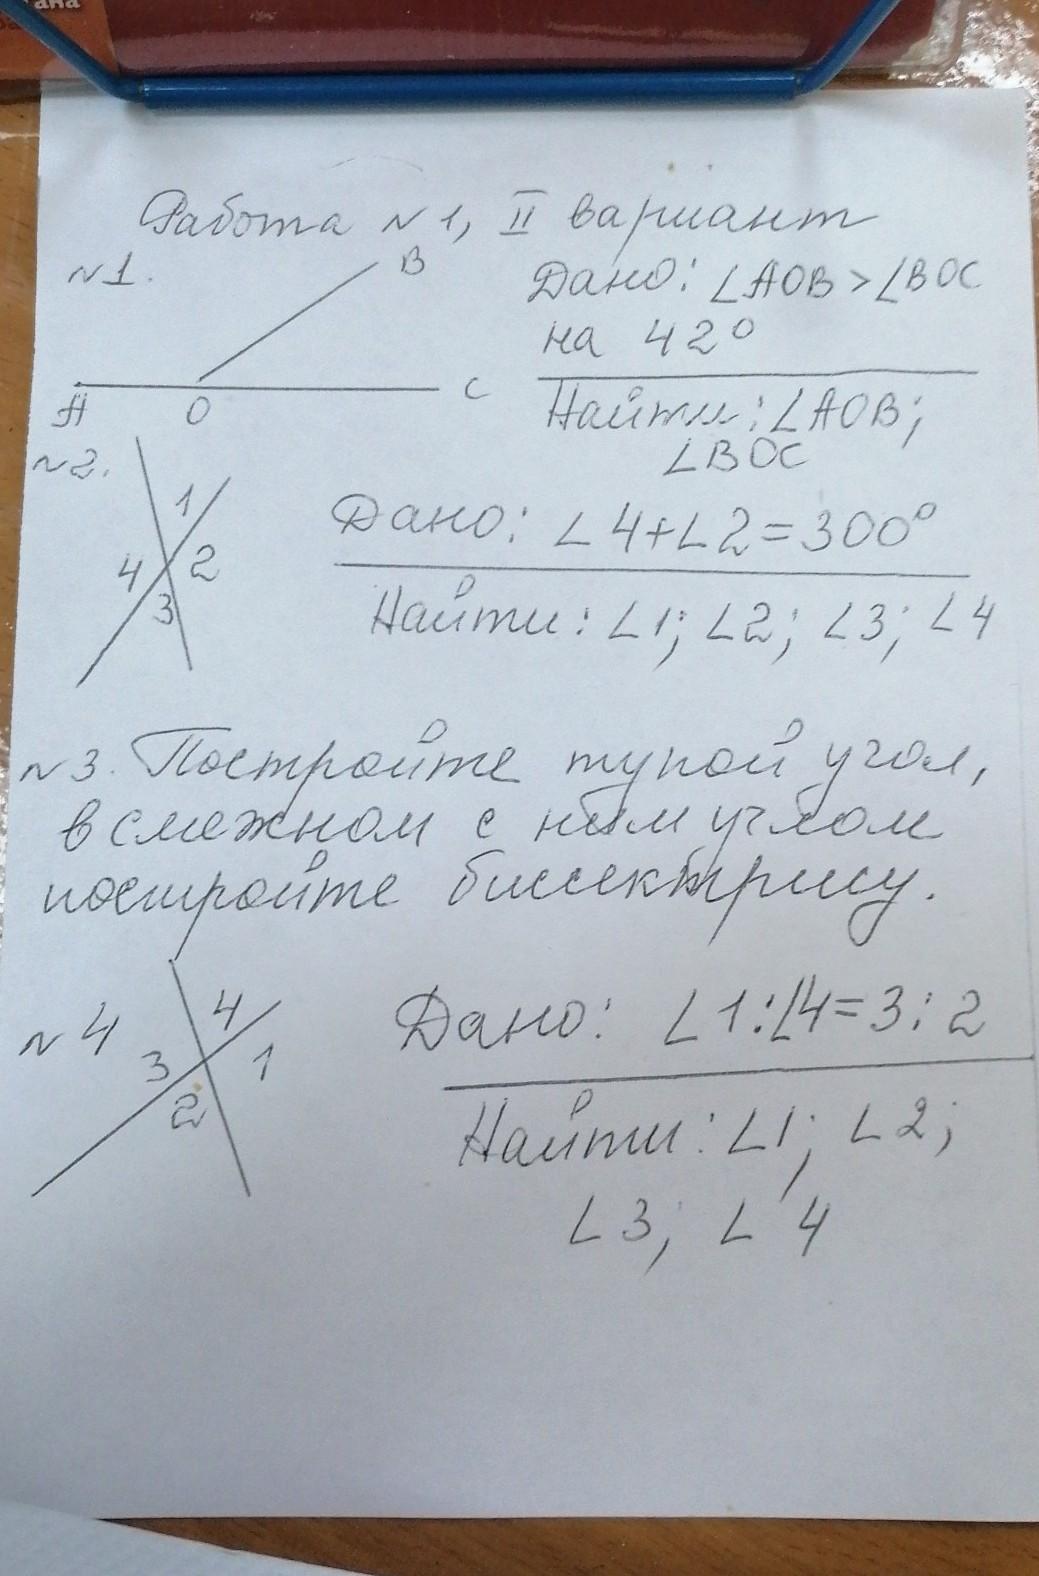 Работа №1, II вариант
№1.
B
A
O
C
Дано: ∠AOB > ∠BOC
на 42°
Найти: ∠AOB;
∠BOC
№2.
1
4 2
3
Дано: ∠4+∠2=300°
Найти: ∠1; ∠2; ∠3; ∠4
№3. Постройте тупой угол,
в смежном с ним углом
постройте биссектрису.
№4
4
3 1
2
Дано: ∠1:∠4=3:2
Найти: ∠1; ∠2;
∠3; ∠4